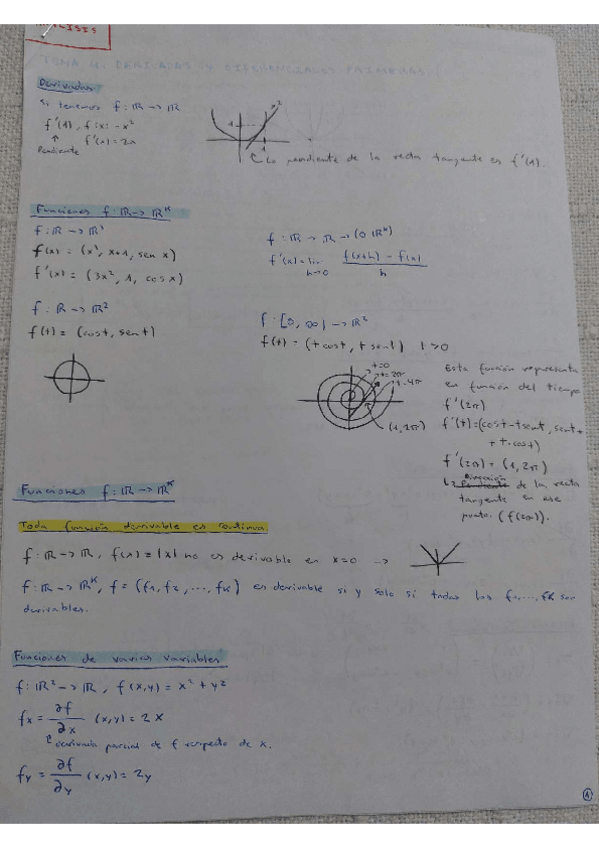 ANÁLISIS
TEMA 4. DERIVADAS Y DIFERENCIALES PRIMERAS
Derivadas
Si tenemos f: ℝ -> ℝ
f'(1), f(x) = x²
↑ f'(x) = 2x
Pendiente
x²
1
1
La pendiente de la recta tangente es f'(1).
Funciones f: ℝ -> ℝᴷ
f: ℝ -> ℝ³
f(x) = (x³, x+1, sen x)
f'(x) = (3x², 1, cos x)
f: ℝ -> ℝ -> (o ℝᴷ)
f'(x) = lim h->0 f(x+h) - f(x) / h
f: ℝ -> ℝ²
f(t) = (cost, sent)
f: [0, ∞) -> ℝ²
f(t) = (t cost, t sent) t>0
t=0
t=2π
t=4π
(1, 2π)
Esta función representa
en función del tiempo
f'(2π)
f'(t) = (cost - t sent, sent +
+ t·cost)
f'(2π) = (1, 2π)
Dirección
↳ Pendiente de la recta
tangente en ese
punto. (f(2π)).
Funciones f: ℝ -> ℝᴷ
Toda función derivable es continua.
f: ℝ -> ℝ, f(x) = |x| no es derivable en x=0 ->
f: ℝ -> ℝᴷ, f = (f1, f2, ..., fK) es derivable si y solo si todas las f1, ..., fK son
derivables.
Funciones de varias variables
f: ℝ² -> ℝ, f(x,y) = x² + y²
fx = ∂f/∂x (x,y) = 2x
derivada parcial de f respecto de x.
fy = ∂f/∂y (x,y) = 2y
1